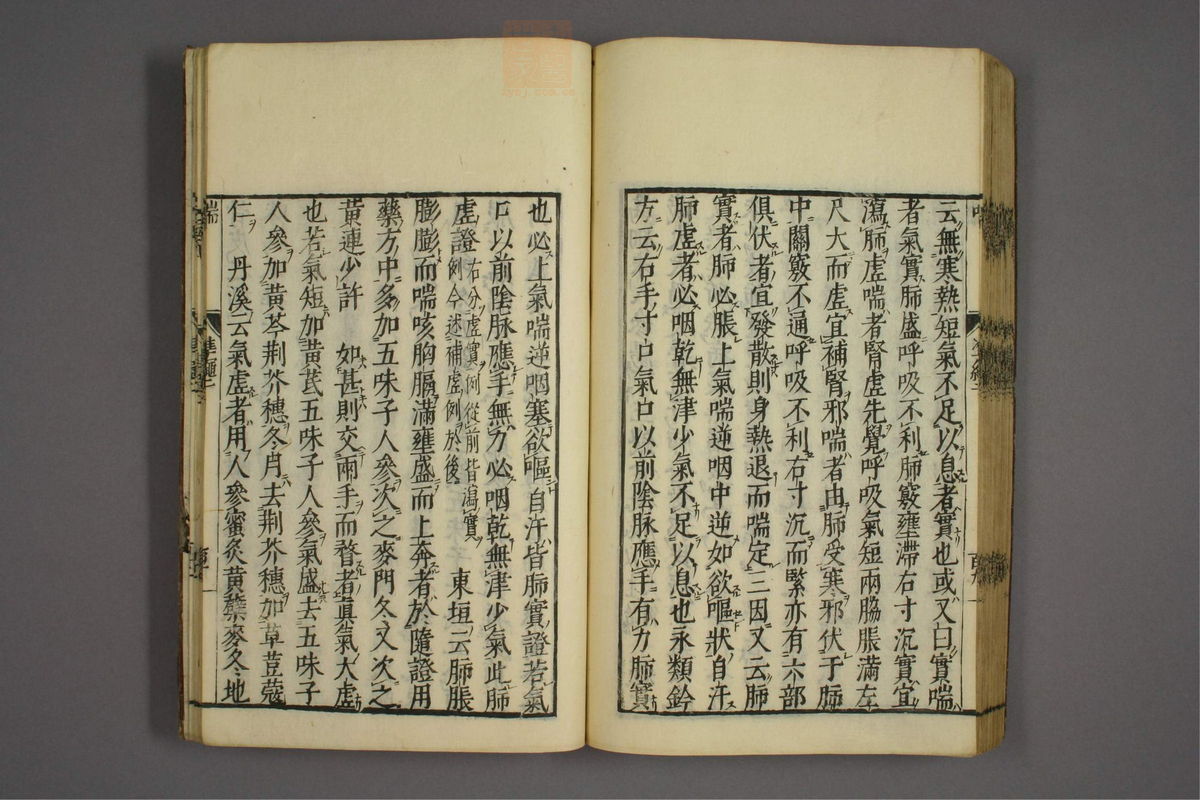 云無寒熱短氣不足以息者實也或又曰實喘
者氣實肺盛呼吸不利肺竅壅滯右寸沉實宜
瀉肺虛喘者腎虛先覺呼吸氣短兩脇脹滿左
尺大而虛宜補腎邪喘者由肺受寒邪伏于肺
中關竅不通呼吸不利右寸沉而緊亦有六部
俱伏者宜發散則身熱退而喘定三因又云肺
實者肺必脹上氣喘逆咽中逆如欲嘔狀自汗
肺虛者必咽乾無津少氣不足以息也永類鈐
方云右手寸口氣口以前陰脉應手有力肺實
也必上氣喘逆咽塞欲嘔自汗皆肺實證若氣
口以前陰脉應手無力必咽乾無津少氣此肺
虛證右分虛實例從前皆瀉實例今述補虛例於後 東垣云肺脹
膨膨而喘咳胸膈滿壅盛而上奔者於隨證用
藥方中多加五味子人參次之麥門冬又次之
黃連少許 如甚則交兩手而瞀者真氣大虛
也若氣短加黃芪五味子人參氣盛去五味子
人參加黃芩荆芥穗冬月去荆芥穗加草荳蔻
仁 丹溪云氣虛者用人參蜜炙黃蘗麥冬地
喘